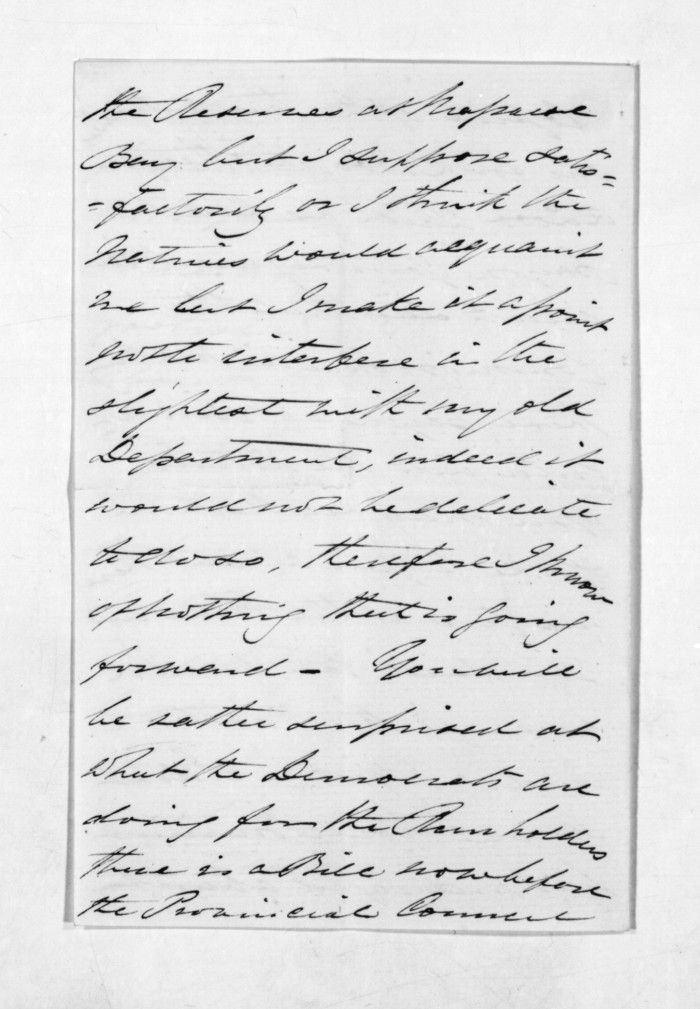 the Reserves at Massacre
Bay but I suppose satis=
=factorily or I think the
Natives would acquaint
me but I make it a point
not to interfere in the
slightest with my old
Department, indeed it
would not be delicate
to do so, therefore I know
of nothing that is going
forward - You will
be rather surprised at
what the Democrats are
doing for the Run holders
there is a Bill now before
the Provincial Council